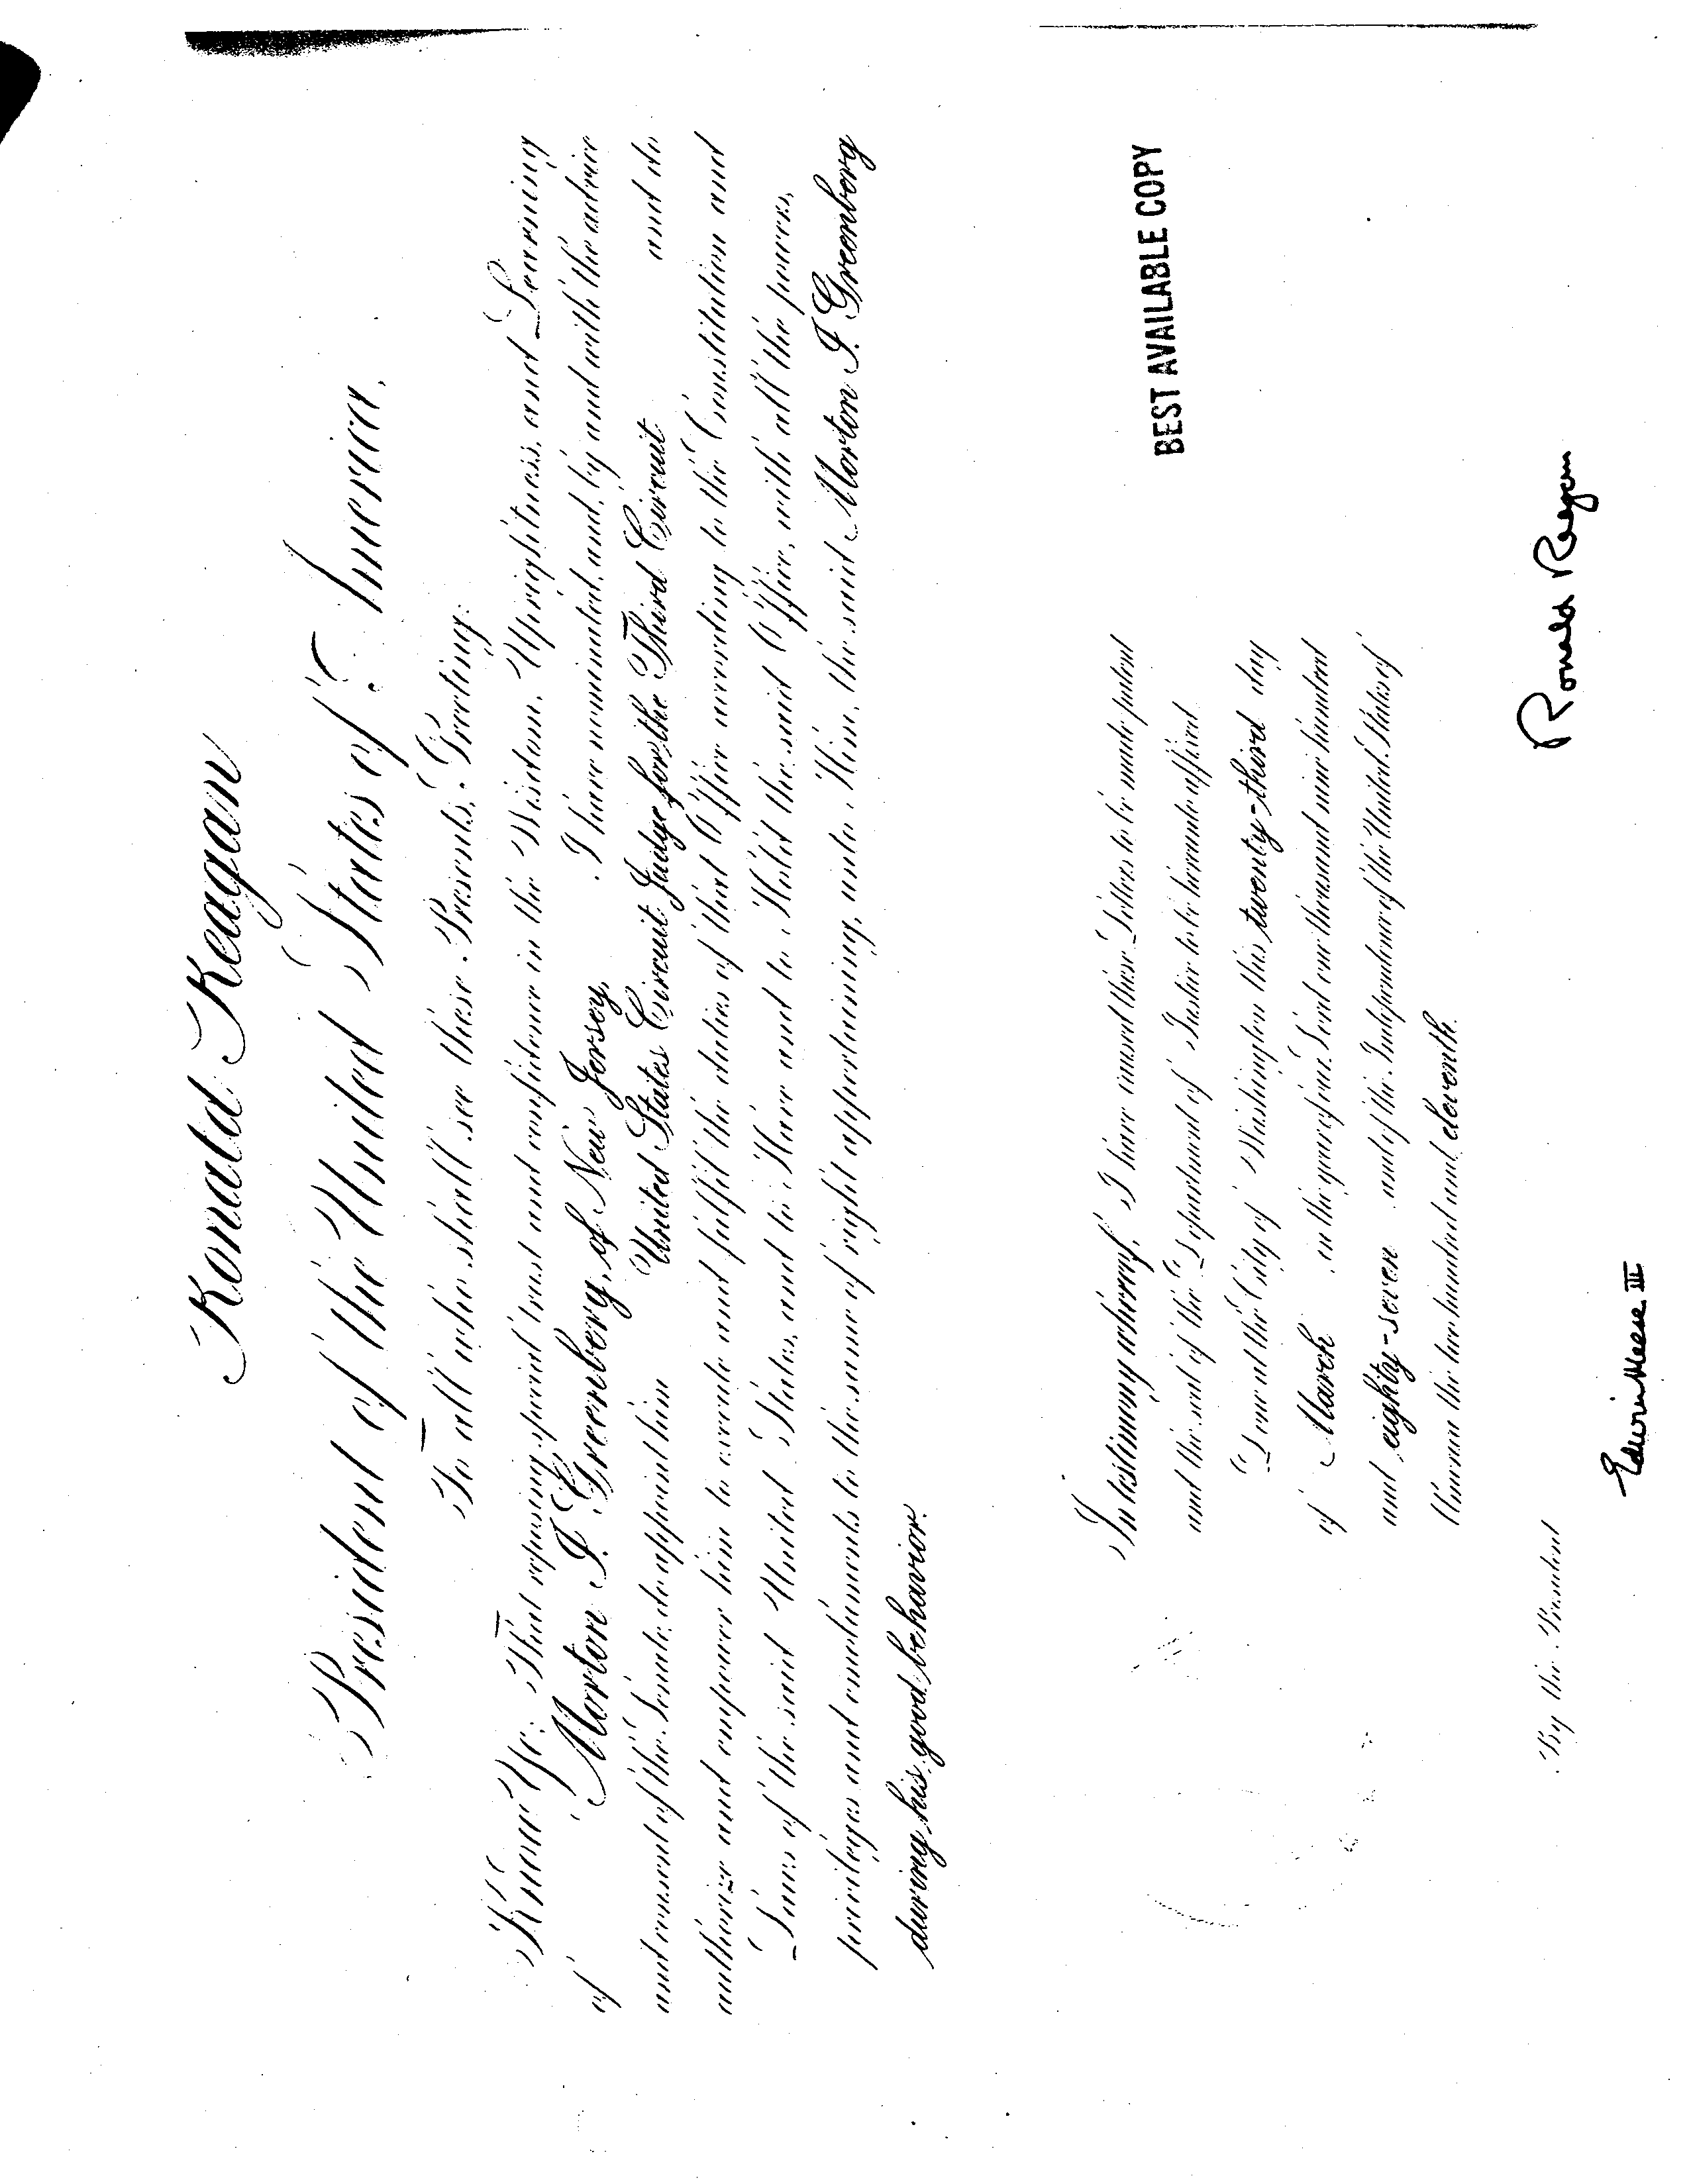 Ronald Reagan
President of the United States of America.
To all who shall see these Presents, Greeting:
Know Ye; That reposing special trust and confidence in the Wisdom, Uprightness, and Learning
of Morton I. Greenberg, of New Jersey, I have nominated, and, by and with the advice
and consent of the Senate, do appoint him United States Circuit Judge for the Third Circuit and do
authorize and empower him to execute and fulfil the duties of that Office according to the Constitution and
Laws of the said United States, and to Have and to Hold the said Office, with all the powers,
privileges and emoluments to the same of right appertaining, unto Him, the said Morton I. Greenberg
during his good behavior.
In testimony whereof, I have caused these Letters to be made patent
and the seal of the Department of Justice to be hereunto affixed.
Done at the City of Washington this twenty-third day
of March in the year of our Lord one thousand nine hundred
and eighty-seven and of the Independence of the United States of
America the two hundred and eleventh.
BEST AVAILABLE COPY
Ronald Reagan
By the President
Edwin Meese III